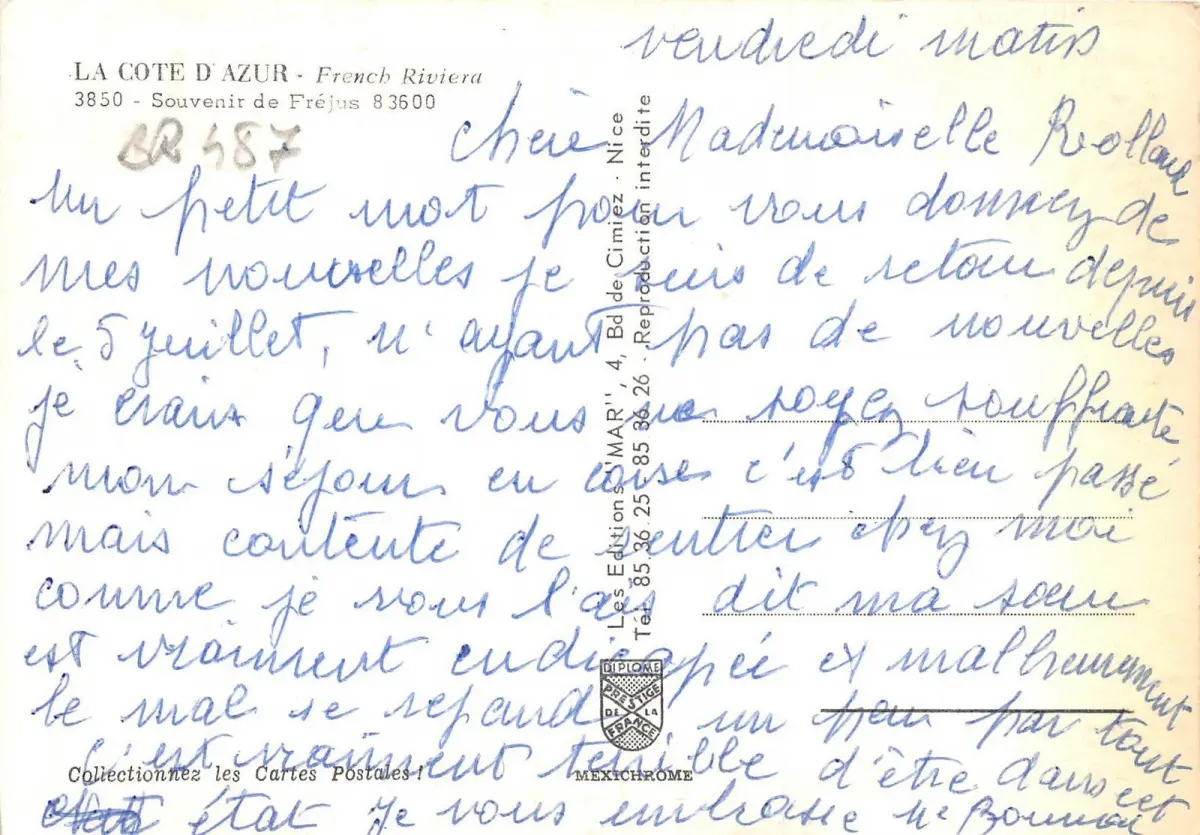 vendredi matin
LA COTE D'AZUR - French Riviera
3850 - Souvenir de Fréjus 83600
BR 487
Chère Mademoiselle Rolland
Un petit mot pour vous donner de
mes nouvelles je suis de retour depuis
le 5 juillet, n'ayant pas de nouvelles
je crains que vous ne soyez souffrante
mon séjour en corse c'est bien passé
mais contente de rentrer chez moi
comme je vous l'ais dit ma soeur
est vraiment endicapée et malheureusement
le mal se repand un peu par tout
C'est vraiment terrible d'être dans cet
état je vous embrasse
Les Editions "MAR", 4, Bd de Cimiez - Nice
Tél. 85.36.25 85.36.26 - Reproduction interdite
DIPLOME
PRESTIGE
DE LA
FRANCE
Collectionnez les Cartes Postales !
MEXICHROME